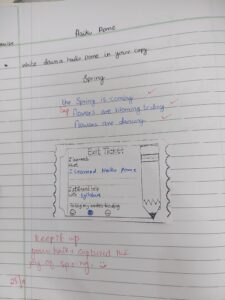 Haiku Pome
write down a haiku pome in your copy
Spring
the Spring is coming
Cap
flowers are blooming
flowers are dancing
Exit Ticket
I learned
that
I learned Haiku Pome
with syllabus
Keep it up
your haiku captured the
joy of spring